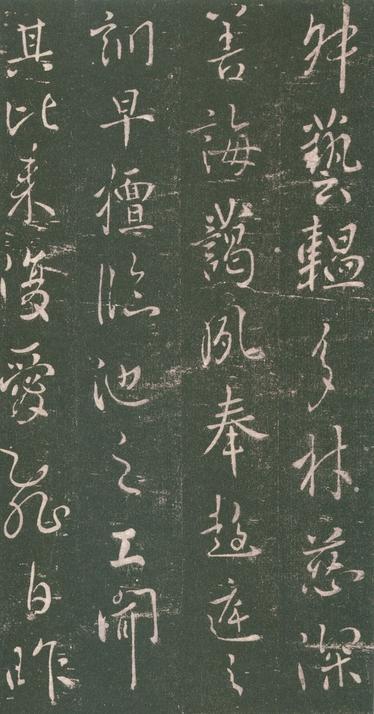 藝韞多材慈深
善誨藹夙奉趍庭之
訓早擅臨池之工聞
其比来復愛飛白昨